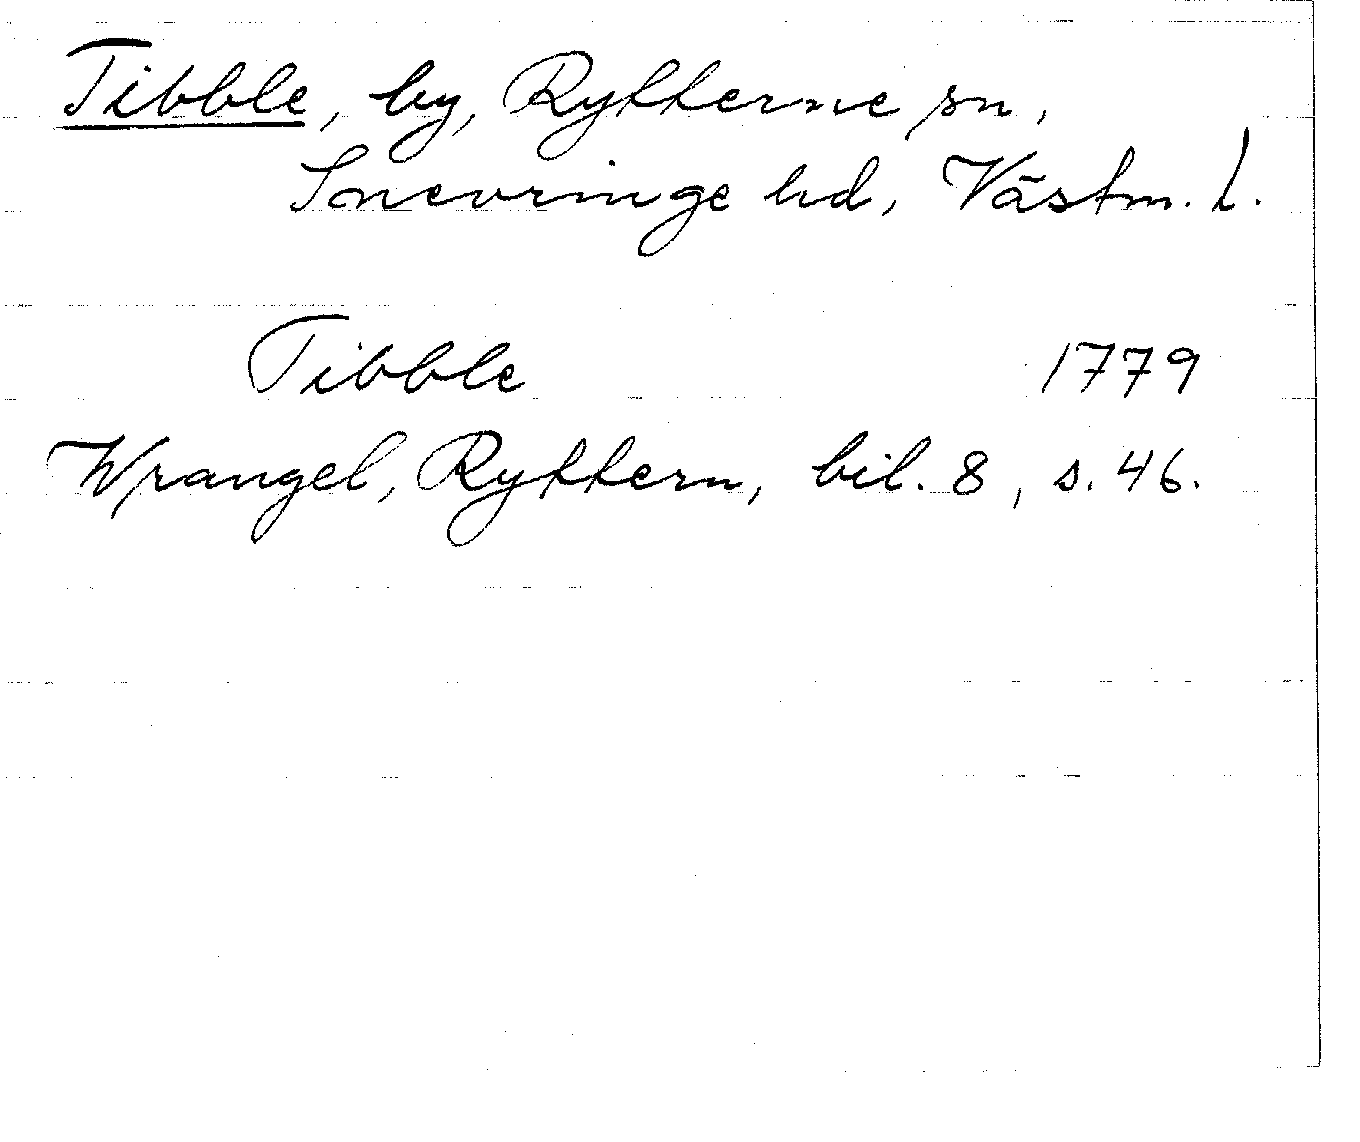 Tibble, by, Rytterne sn,
Snevringe hd, Västm. l.
Tibble 1779
Wrangel, Ryttern, bil. 8, s. 46.